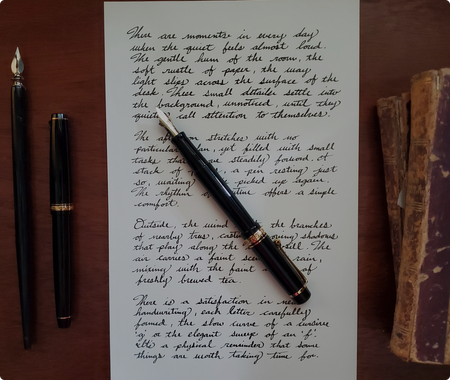 There are moments in every day
when the quiet feels almost loud.
The gentle hum of the room, the
soft rustle of paper, the way
light slips across the surface of the
desk. These small details settle into
the background, unnoticed, until they
call attention to themselves.
The stretches with no
particular yet filled with small
tasks steadily forward. A
stack of a pen resting just
so, waiting picked up again.
The rhythm offers a simple
comfort.
Outside, the wind the branches
of nearby trees, shadows
that play along the The
air carries a faint rain,
mixing with the faint of
freshly brewed tea.
There is a satisfaction in
handwriting, each letter carefully
formed, the slow curve of a cursive
or the elegant sweep of an 'f'.
a physical reminder that some
things are worth taking time for.